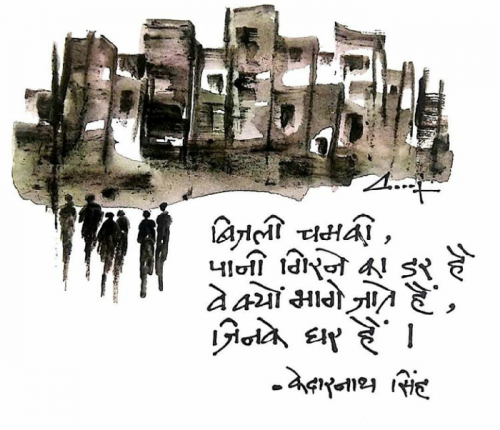 बिजली चमकी,
पानी गिरने का डर है
वे क्यों भागे जाते हैं,
जिनके घर हैं।
- केदारनाथ सिंह